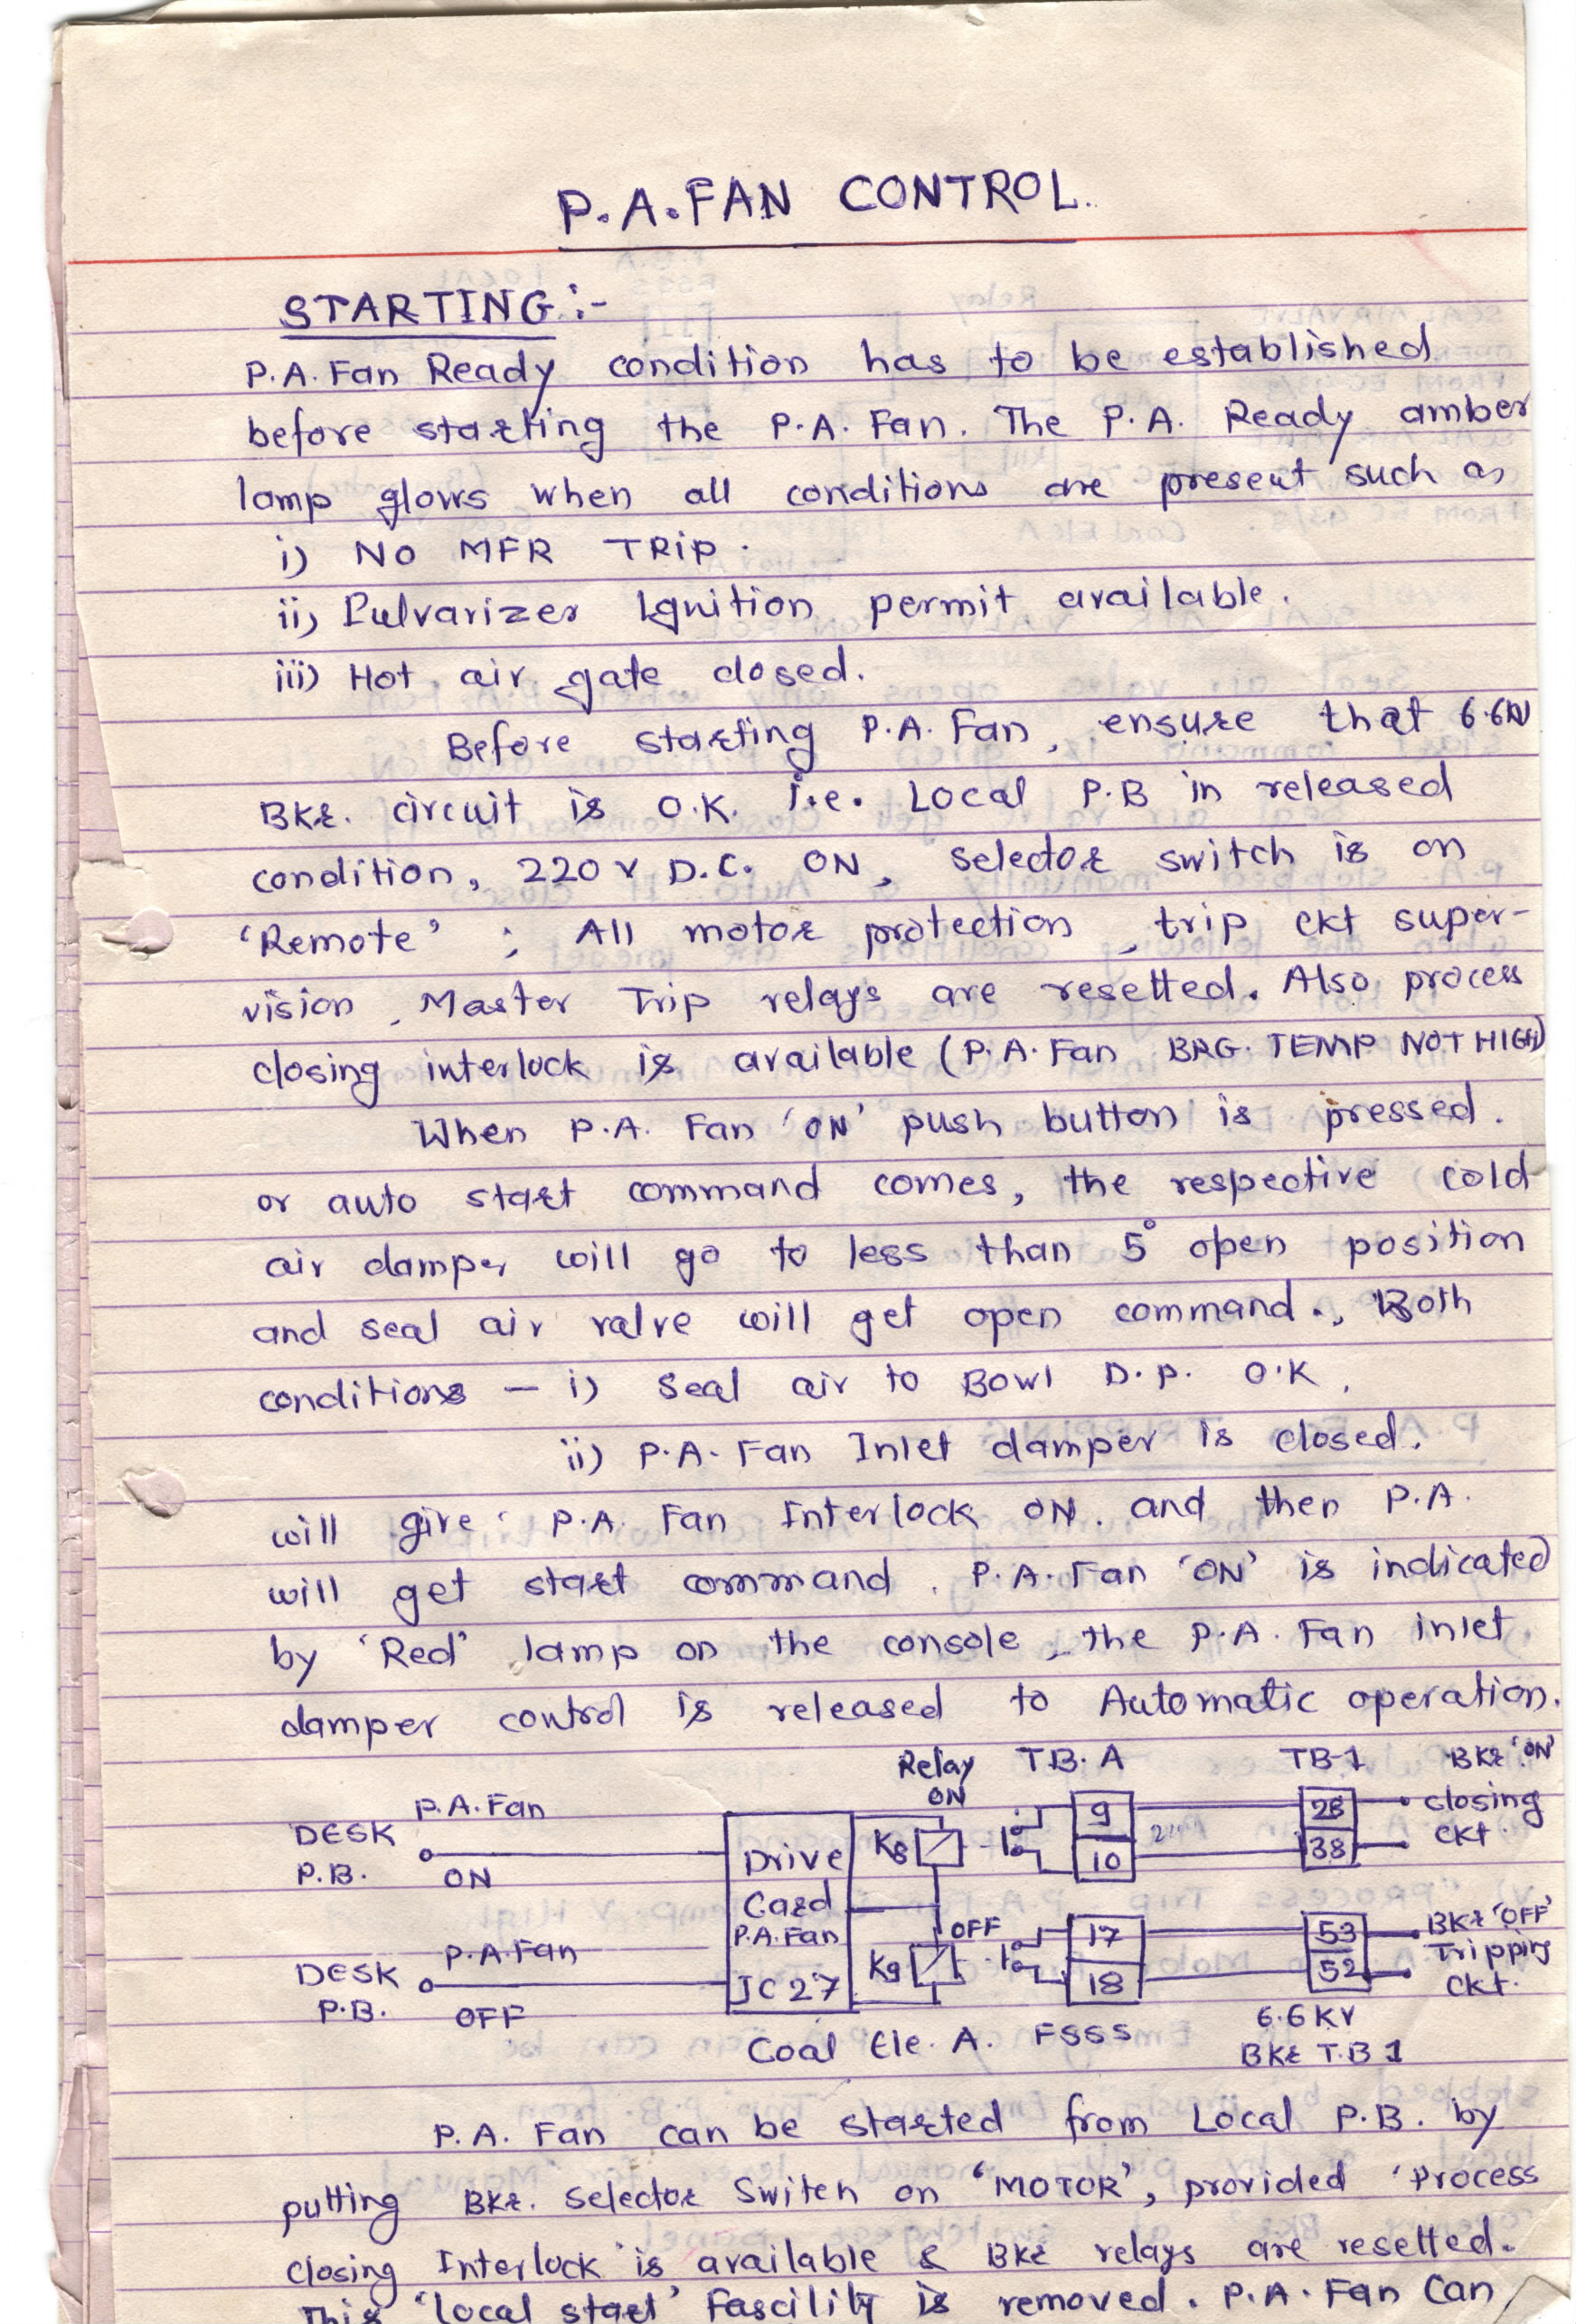 P.A.FAN CONTROL.
STARTING:-
P.A. Fan Ready condition has to be established
before starting the P.A. Fan. The P.A. Ready amber
lamp glows when all conditions are present such as
i) NO MFR TRIP.
ii) Pulvarizer Ignition permit available.
iii) Hot air gate closed.
Before starting P.A. Fan, ensure that 6.6KV
BKR. circuit is O.K. i.e. Local P.B in released
condition, 220 V D.C. ON, selector switch is on
'Remote'; All motor protection, trip ckt super-
vision, Master Trip relays are resetted. Also process
closing interlock is available (P.A. Fan BRG. TEMP NOT HIGH)
When P.A. Fan 'ON' push button is pressed.
or auto start command comes, the respective cold
air damper will go to less than 5° open position
and seal air valve will get open command., Both
conditions — i) Seal air to Bowl D.P. O.K,
ii) P.A. Fan Inlet damper is closed.
will give P.A. Fan Interlock ON. and then P.A.
will get start command. P.A. Fan 'ON' is indicated
by 'Red' lamp on the console, the P.A. Fan inlet
damper control is released to Automatic operation.
Relay T.B. A TB-1 BKR 'ON'
P.A. Fan ON 9 28 closing
DESK Drive K8 10 38 ckt.
P.B. ON
Card
P.A. Fan OFF 17 53 BKR 'OFF'
DESK P.A. Fan K9 18 52 Tripping
P.B. OFF JC27 ckt.
Coal Ele. A. FSSS 6.6 KV
BKR T.B 1
P.A. Fan can be started from Local P.B. by
putting BKR. selector Switch on 'MOTOR', provided 'Process
closing Interlock' is available & BKR relays are resetted.
This 'local start' fascility is removed. P.A. Fan Can